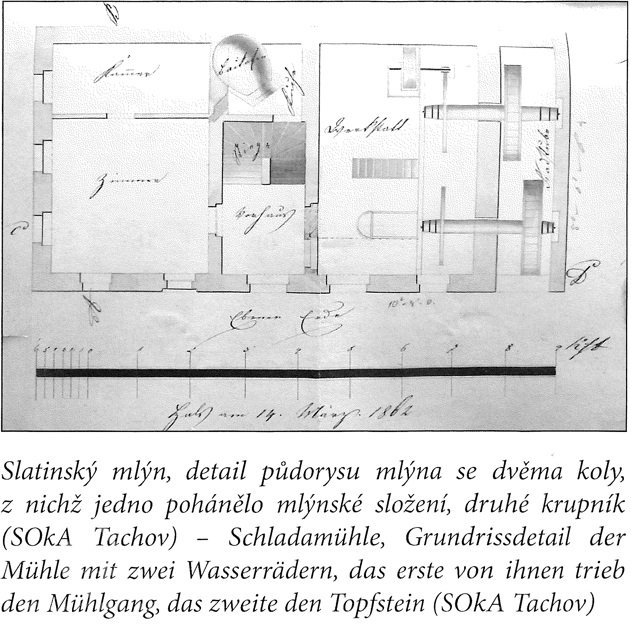 B
Kamer
Backofen
Küche
Werkstatt
Stiege
Zimmer
Radstube
Vorhaus
C
D
Ebener Erde
1 2
8
Hals am 14. März 1862
Slatinský mlýn, detail půdorysu mlýna se dvěma koly,
z nichž jedno pohánělo mlýnské složení, druhé krupník
(SOkA Tachov) – Schladamühle, Grundrissdetail der
Mühle mit zwei Wasserrädern, das erste von ihnen trieb
den Mühlgang, das zweite den Topfstein (SOkA Tachov)